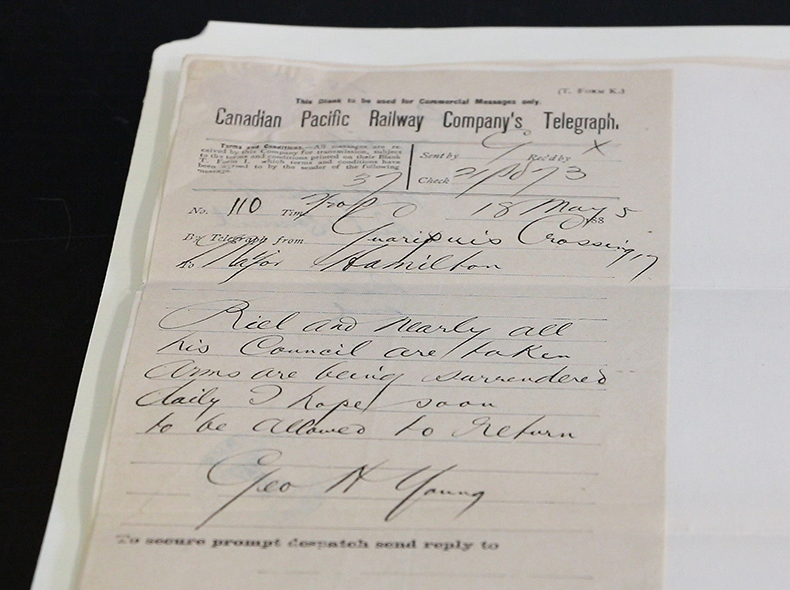 (T. FORM K.)
This Blank to be used for Commercial Messages only.
Canadian Pacific Railway Company's Telegraph.
Terms and Conditions.—All messages are re-
ceived by this Company for transmission, subject
to the terms and conditions printed on their Blank
T. Form 1, which terms and conditions have
been agreed to by the sender of the following
message.
Sent by Rec'd by X
Check
No. 110 Time 18 May 1885
By Telegraph from Crossing 17
To Major Hamilton
Riel and nearly all
his Council are taken
Arms are being surrendered
daily I hope soon
to be allowed to return
Geo H Young
To secure prompt despatch send reply to